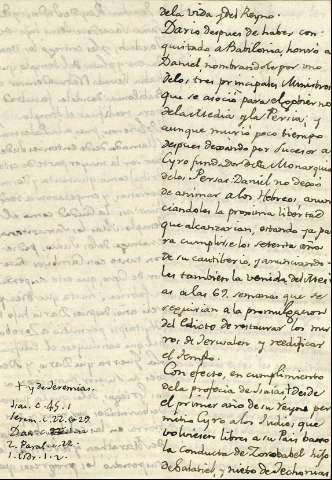 de la vida y del Reyno.
Dario despues de haber con
quistado a Babilonia, honró a
Daniel nombrandole por uno
de los tres principales Ministros
que se asoció para el gobierno
de la Media y la Persia; y
aunque murió poco tiempo
despues dexando por sucesor a
Cyro fundador de la Monarquia
de los Persas. Daniel no dexó
de animar a los Hebreos, anun
ciandoles la proxima libertad
que alcanzarian, estando ya pa
ra cumplirse los setenta años
de su cautiberio, y anunciando
les tambien la venida del Mesi
as a las 69 semanas que se
seguirian a la promulgacion
del Edicto de restaurar los mu
ros de Jerusalen y reedificar
el Templo.
Con efecto, en cumplimiento
de la profecia de Isaias + desde
el primer año de su Reyno per
mitio Cyro a los Judios, que
volviesen libres a su Pais baxo
la conducta de Zorobabel hijo
de Salatiel, y nieto de Jechonias
+ y de Jeremias.
Isai. c. 45. 1
Jerem. c. 22. c. 29
Dan. c.
2. Paral. c. 22.
1. Esdr. 1. 2.